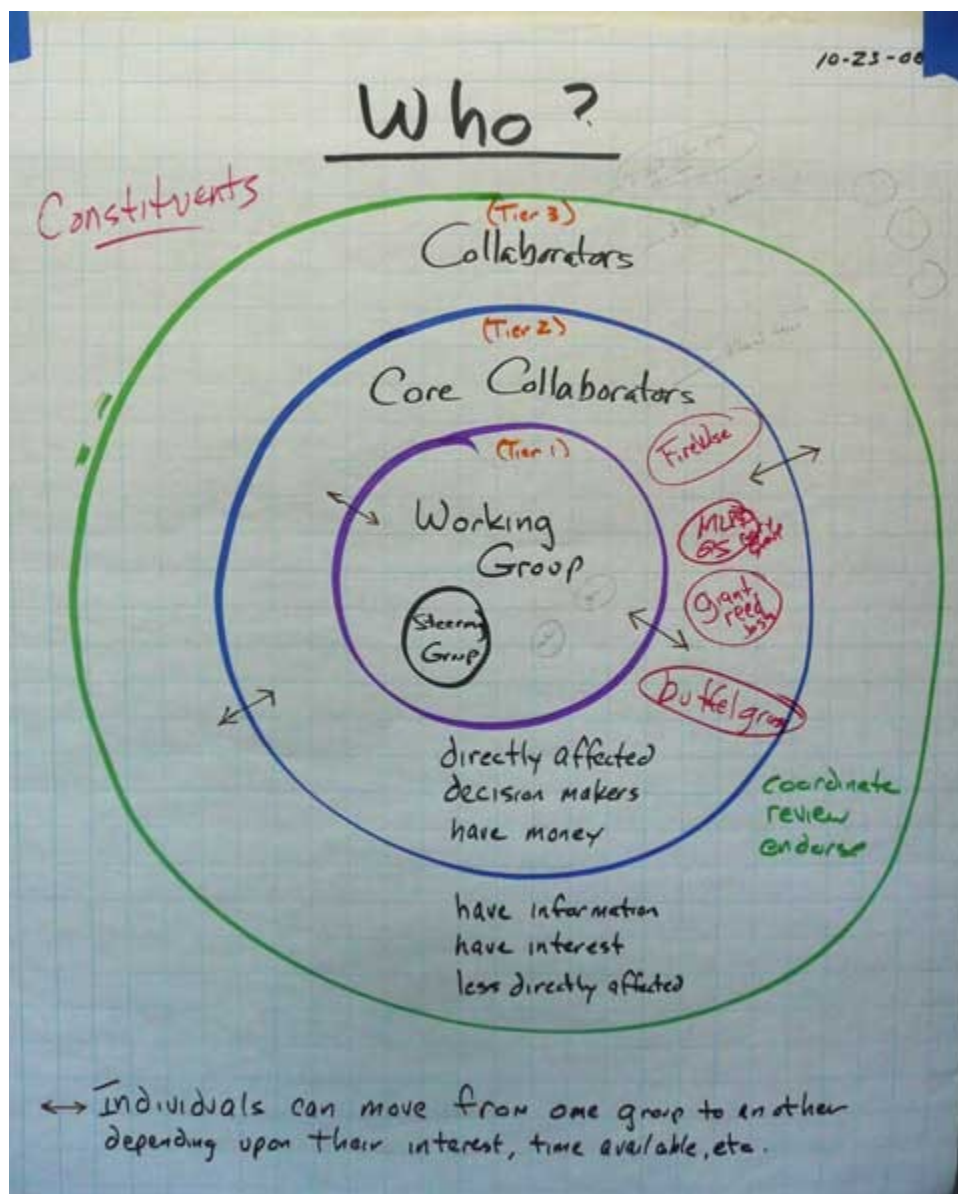 10-23-06
Who?
Constituents
(Tier 3)
Collaborators
(Tier 2)
Core Collaborators
(Tier 1)
FireWise
Working
Group
Steering
Group
giant
reed
buffelgrass
directly affected
decision makers
have money
coordinate
review
endorse
have information
have interest
less directly affected
↔ Individuals can move from one group to another
depending upon their interest, time available, etc.